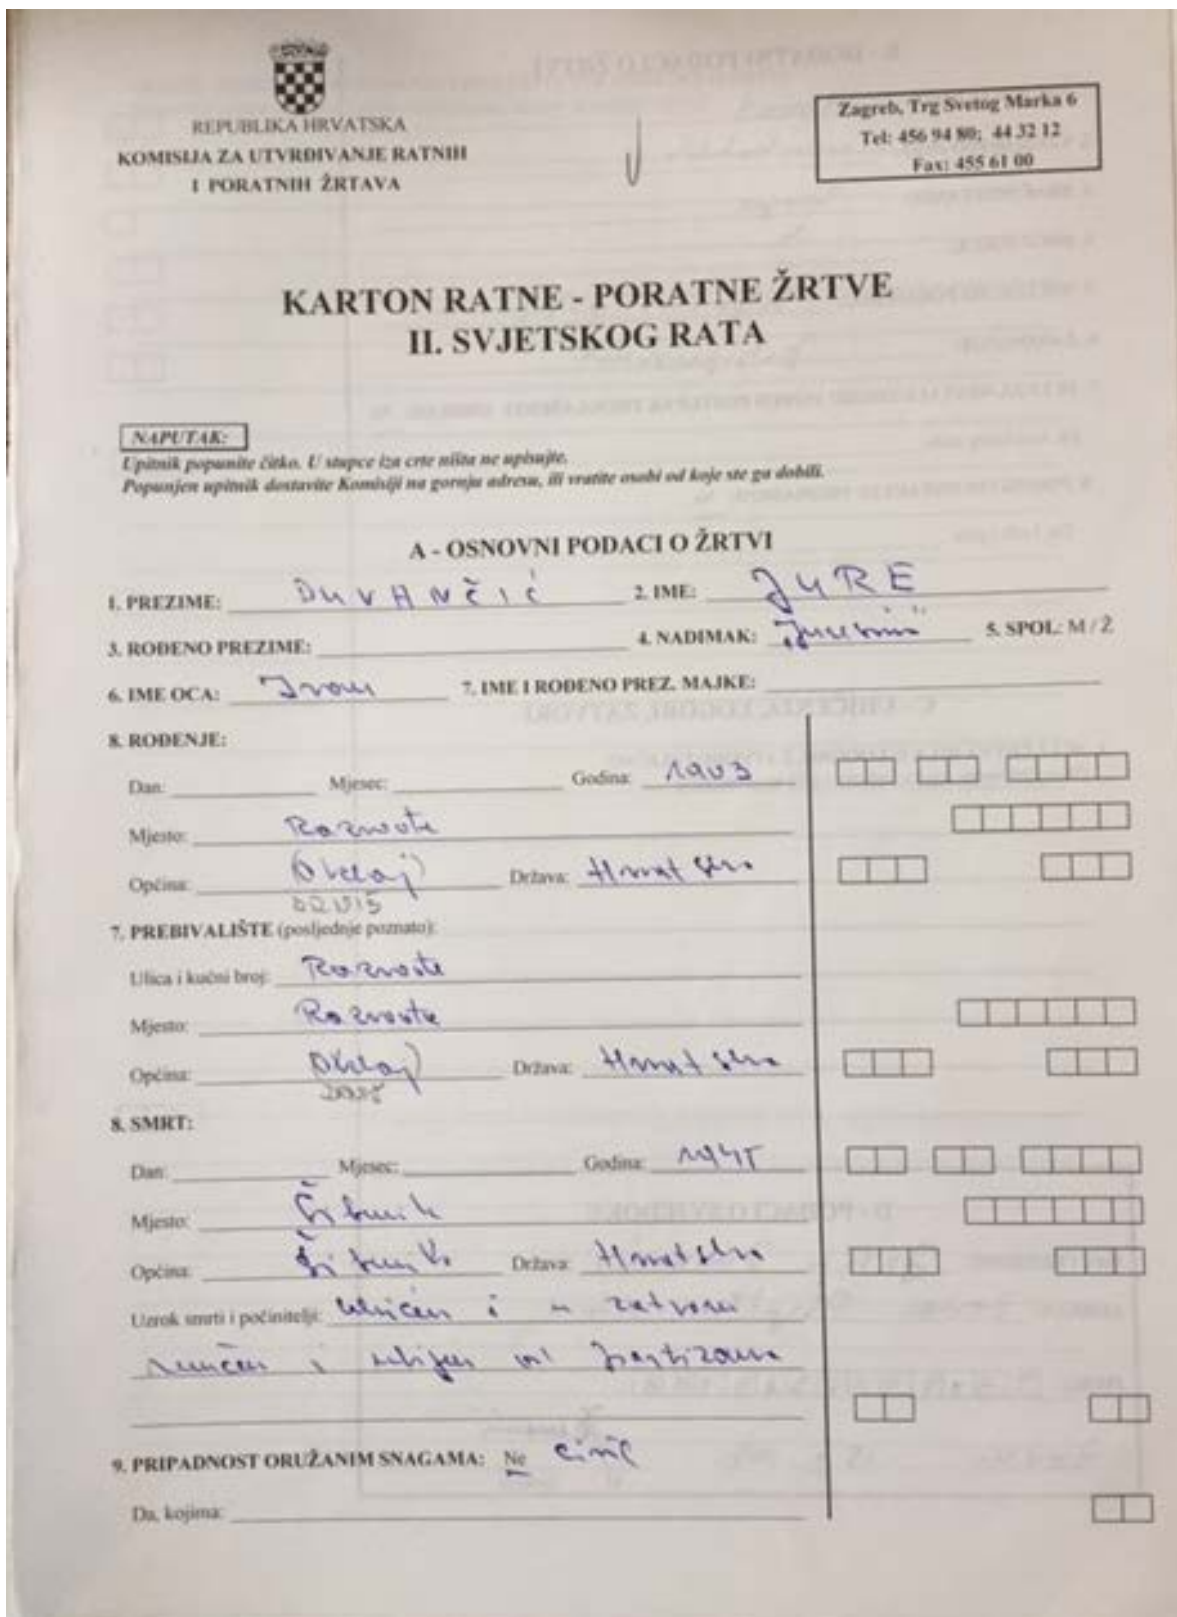 REPUBLIKA HRVATSKA
KOMISIJA ZA UTVRĐIVANJE RATNIH
I PORATNIH ŽRTAVA
Zagreb, Trg Svetog Marka 6
Tel: 456 94 80; 44 32 12
Fax: 455 61 00
KARTON RATNE - PORATNE ŽRTVE
II. SVJETSKOG RATA
NAPUTAK:
Upitnik popunite čitko. U stupce iza crte ništa ne upisujte.
Popunjen upitnik dostavite Komisiji na gornju adresu, ili vratite osobi od koje ste ga dobili.
A - OSNOVNI PODACI O ŽRTVI
1. PREZIME: DUVANČIĆ 2. IME: JURE
3. ROĐENO PREZIME: 4. NADIMAK: 5. SPOL: M / Ž
6. IME OCA: Ivan 7. IME I ROĐENO PREZ. MAJKE:
8. ROĐENJE:
Dan: Mjesec: Godina: 1903
Mjesto: Razvođe
Općina: Oklaj Država: Hrvatska
7. PREBIVALIŠTE (posljednje poznato):
Ulica i kućni broj: Razvođe
Mjesto: Razvođe
Općina: Oklaj Država: Hrvatska
8. SMRT:
Dan: Mjesec: Godina: 1945
Mjesto: Šibenik
Općina: Šibenik Država: Hrvatska
Uzrok smrti i počinitelji: uhićen i u zatvoru
mučen i ubijen od partizana
9. PRIPADNOST ORUŽANIM SNAGAMA: Ne civil
Da, kojima: